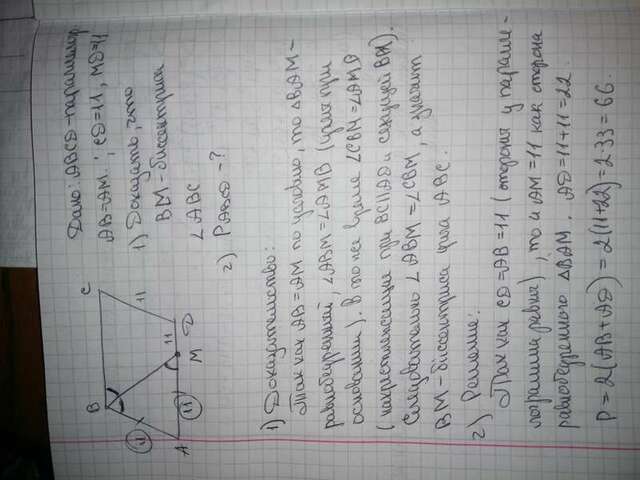 Дано: ABCD-параллелогр.
AB=AM; CD=11, MD=11
1) Доказать, что
BM-биссектриса
∠ABC
2) PABCD-?
B
C
11
11
A
11
M
11
D
1) Доказательство:
Так как AB=AM по условию, то △BAM-
равнобедренный, ∠ABM=∠AMB (углы при
основании). В то же время ∠CBM=∠AMB
(накрестлежащие при BC||AD и секущей BM).
Следовательно ∠ABM=∠CBM, а значит
BM-биссектриса угла ABC.
2) Решение:
Так как CD=AB=11 (стороны у паралле-
лограмма равны), то и AM=11 как сторона
равнобедренного △BAM. AD=11+11=22.
P=2(AB+AD)=2(11+22)=2·33=66.